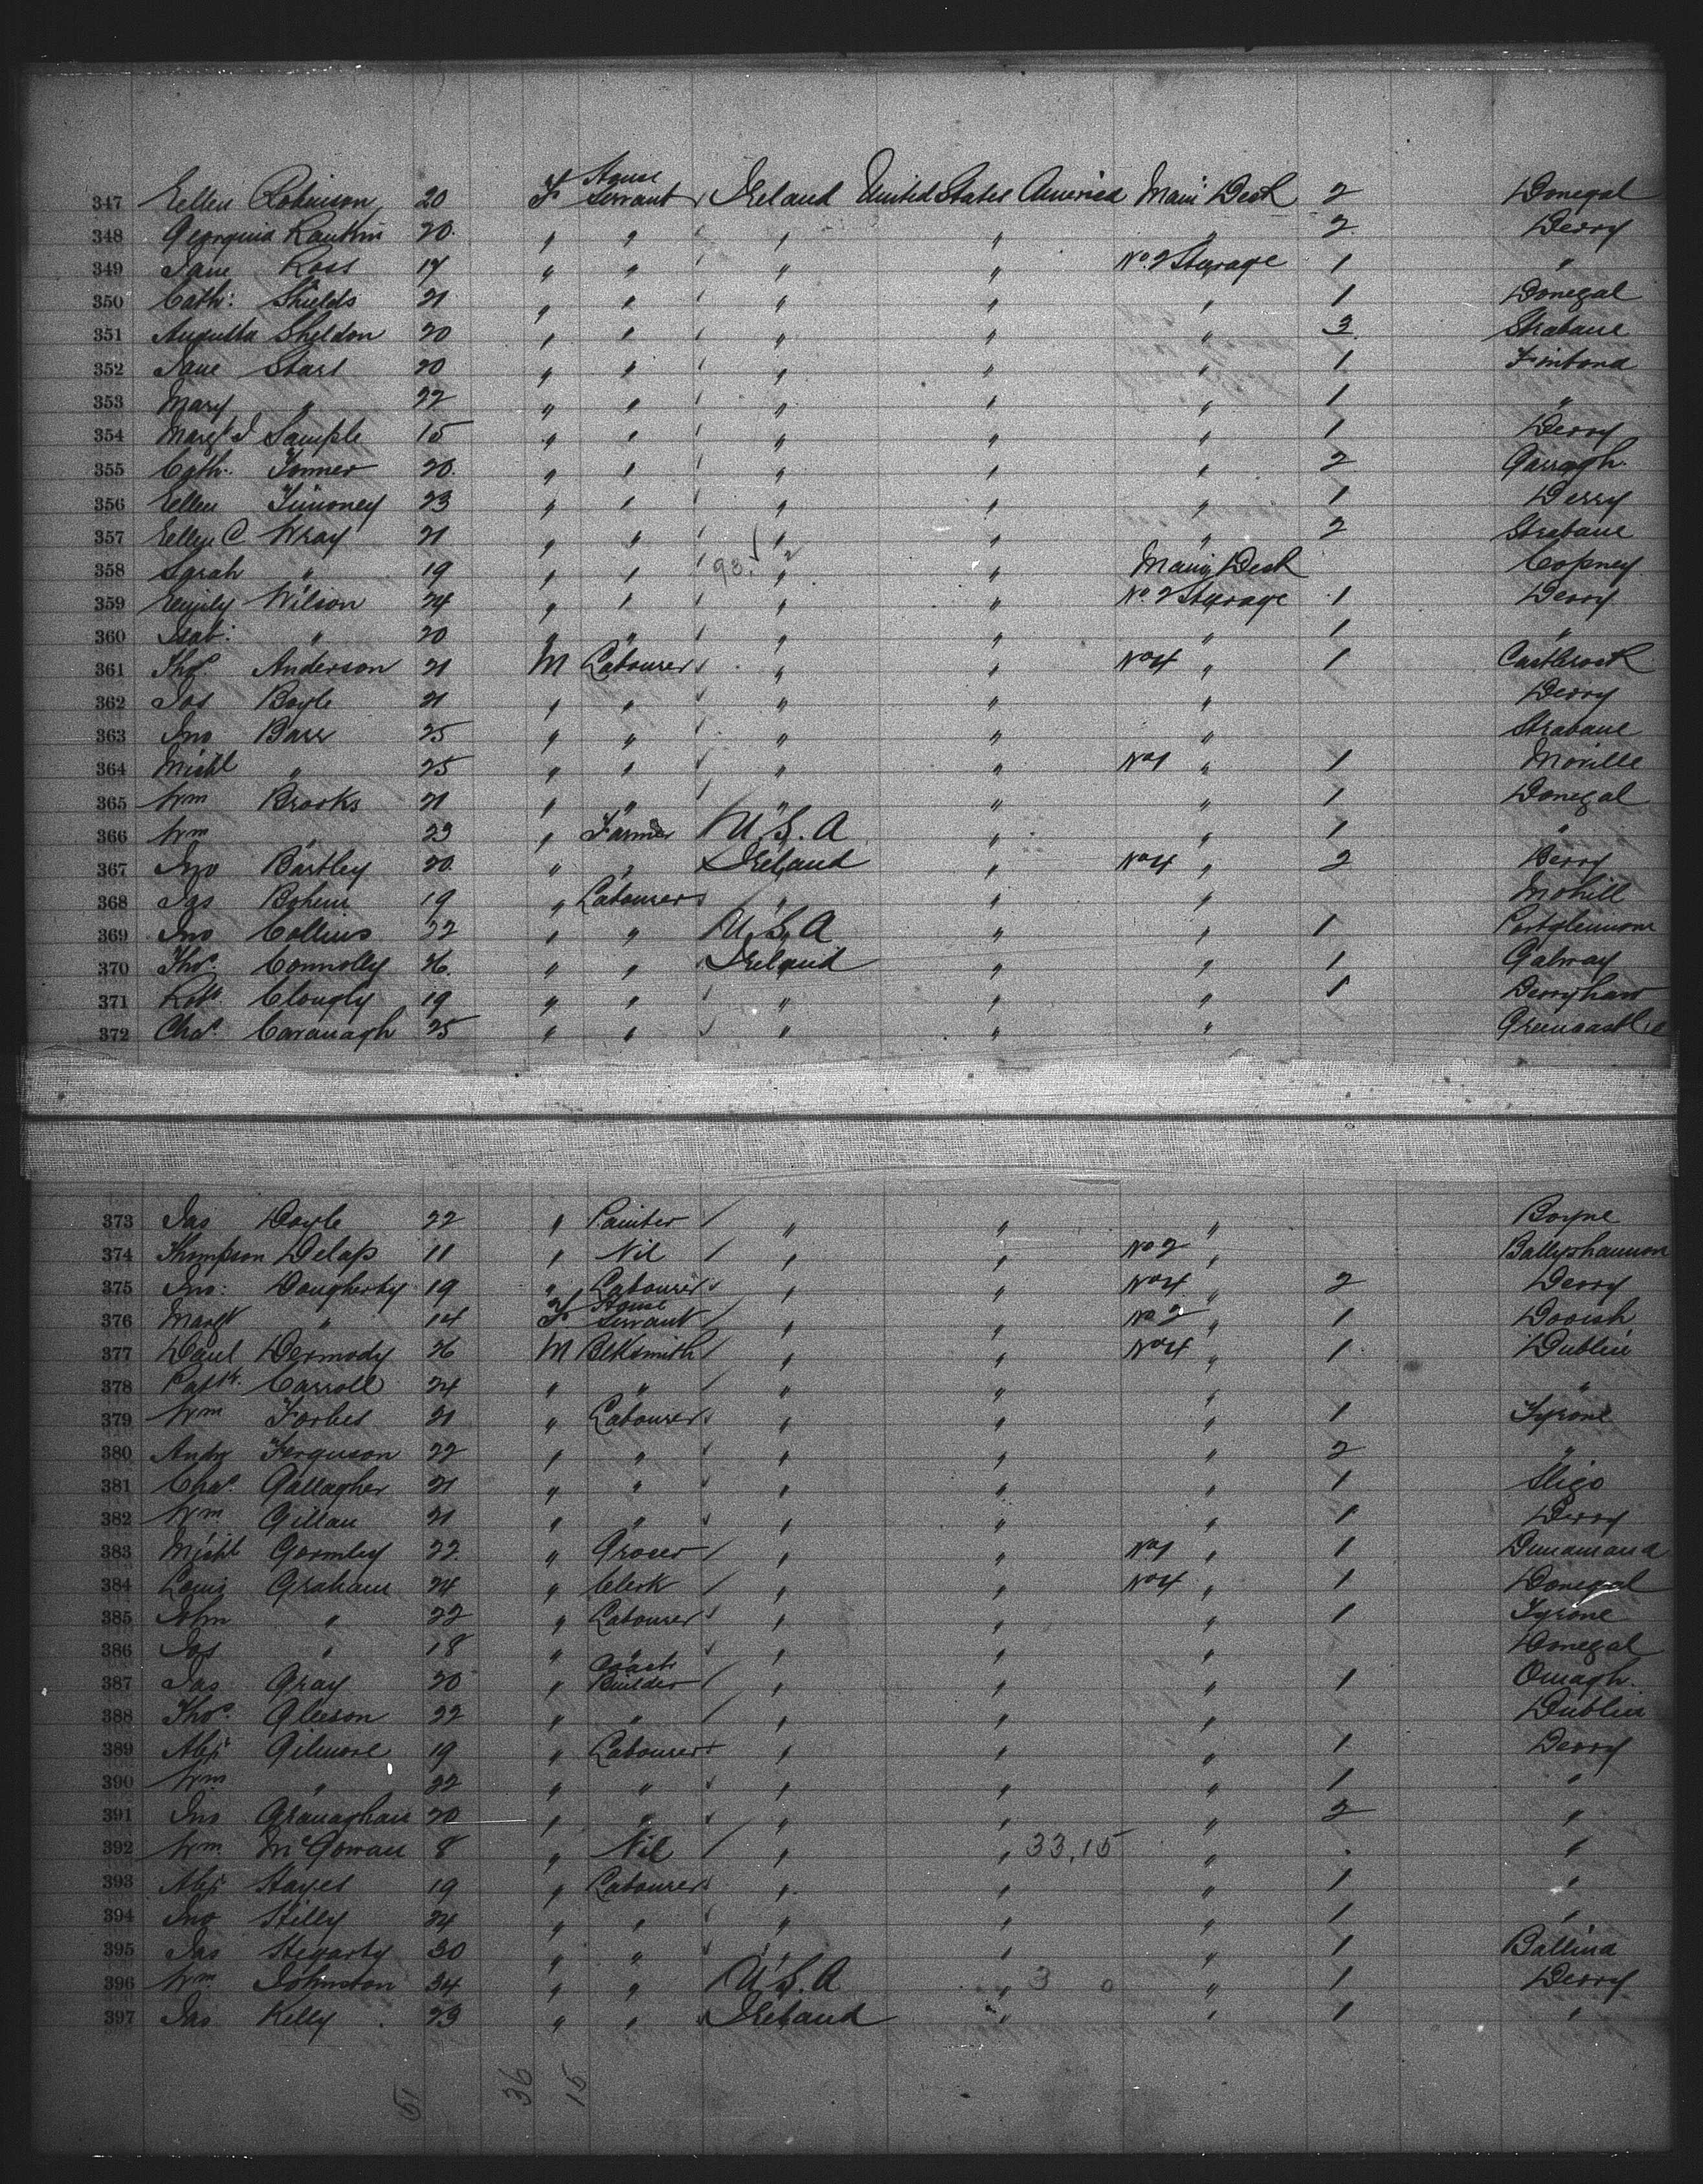 347 Ellen Robinson 20 F House Servant Ireland United States America Main Deck 2 Donegal
348 Georgina Rankin 20 " " " " " 2 Derry
349 Jane Ross 17 " " " " No. 2 Sterage 1 "
350 Cath: Shields 21 " " " " " 1 Donegal
351 Augusta Sheldon 20 " " " " " 3 Strabane
352 Jane Stars 20 " " " " " 1 Fintona
353 Mary " 22 " " " " " 1 "
354 Margt J Sample 15 " " " " " 1 Derry
355 Cath. Tonner 20 " " " " " 2 Garvagh
356 Ellen Timoney 23 " " " " " 1 Derry
357 Ellen C Wray 21 " " " " " 2 Strabane
358 Sarah " 19 " " 93. 2 " " Main Deck Copney
359 Emily Wilson 24 " " " " No. 2 Sterage 1 Derry
360 Isab. " 20 " " " " " 1 "
361 Thos. Anderson 21 M Labourer " " No 4 " 1 Castlerock
362 Jos Boyle 21 " " " " " Derry
363 Jno Barr 25 " " " " " Strabane
364 Michl " 25 " " " " No 1 " 1 Moville
365 Wm Brooks 21 " " " " " 1 Donegal
366 Wm " 23 " Farmer U.S.A " " 1 "
367 Jno Bartley 20 " " Ireland " No 4 " 2 Derry
368 Jas Bohem 19 " Labourer " " " Mohill
369 Jno Collins 22 " " U.S.A " " 1 Portglenone
370 Thos. Connolly 26 " " Ireland " " 1 Galway
371 Robt. Clougly 19 " " " " " 1 Derryhaw
372 Chas. Cavanagh 25 " " " " " Greencastle
373 Jas Doyle 22 " Painter " " " Boyne
374 Thompson Delap 11 " Nil " " No 2 " Ballyshannon
375 Jno: Dougherty 19 " Labourer " " No 4 " 2 Derry
376 Margt " 14 F House Servant " " No 2 " 1 Dooish
377 Danl Dermody 26 M Blksmith " " No 4 " 1 Dublin
378 Patk. Carroll 24 " " " " " "
379 Wm Forbes 21 " Labourer " " " 1 Tyrone
380 Andw Ferguson 22 " " " " " 2 "
381 Chas. Gallagher 21 " " " " " 1 Sligo
382 Wm Gillan 21 " " " " " 1 Derry
383 Michl Gormley 22 " Grocer " " No 1 " 1 Dunamana
384 Louis Graham 24 " Clerk " " No 4 " 1 Donegal
385 John " 22 " Labourer " " " 1 Tyrone
386 Jos " 18 " " " " " Donegal
387 Jas Gray 20 " Coach Builder " " " 1 Omagh
388 Thos. Gleeson 22 " " " " " Dublin
389 Alex. Gilmore 19 " Labourer " " " 1 Derry
390 Wm " 22 " " " " " 1 "
391 Jno Granaghan 20 " " " " " 2 "
392 Wm McGowan 8 " Nil " " 33,15 " "
393 Alex. Hayes 19 " Labourer " " " 1 "
394 Jno Hilly 24 " " " " " 1 "
395 Jas Hegarty 30 " " " " " 1 Ballina
396 Wm Johnston 34 " " U.S.A " 3 0 " 1 Derry
397 Jas Kelly 23 " " Ireland " " 1 "
51 36 15